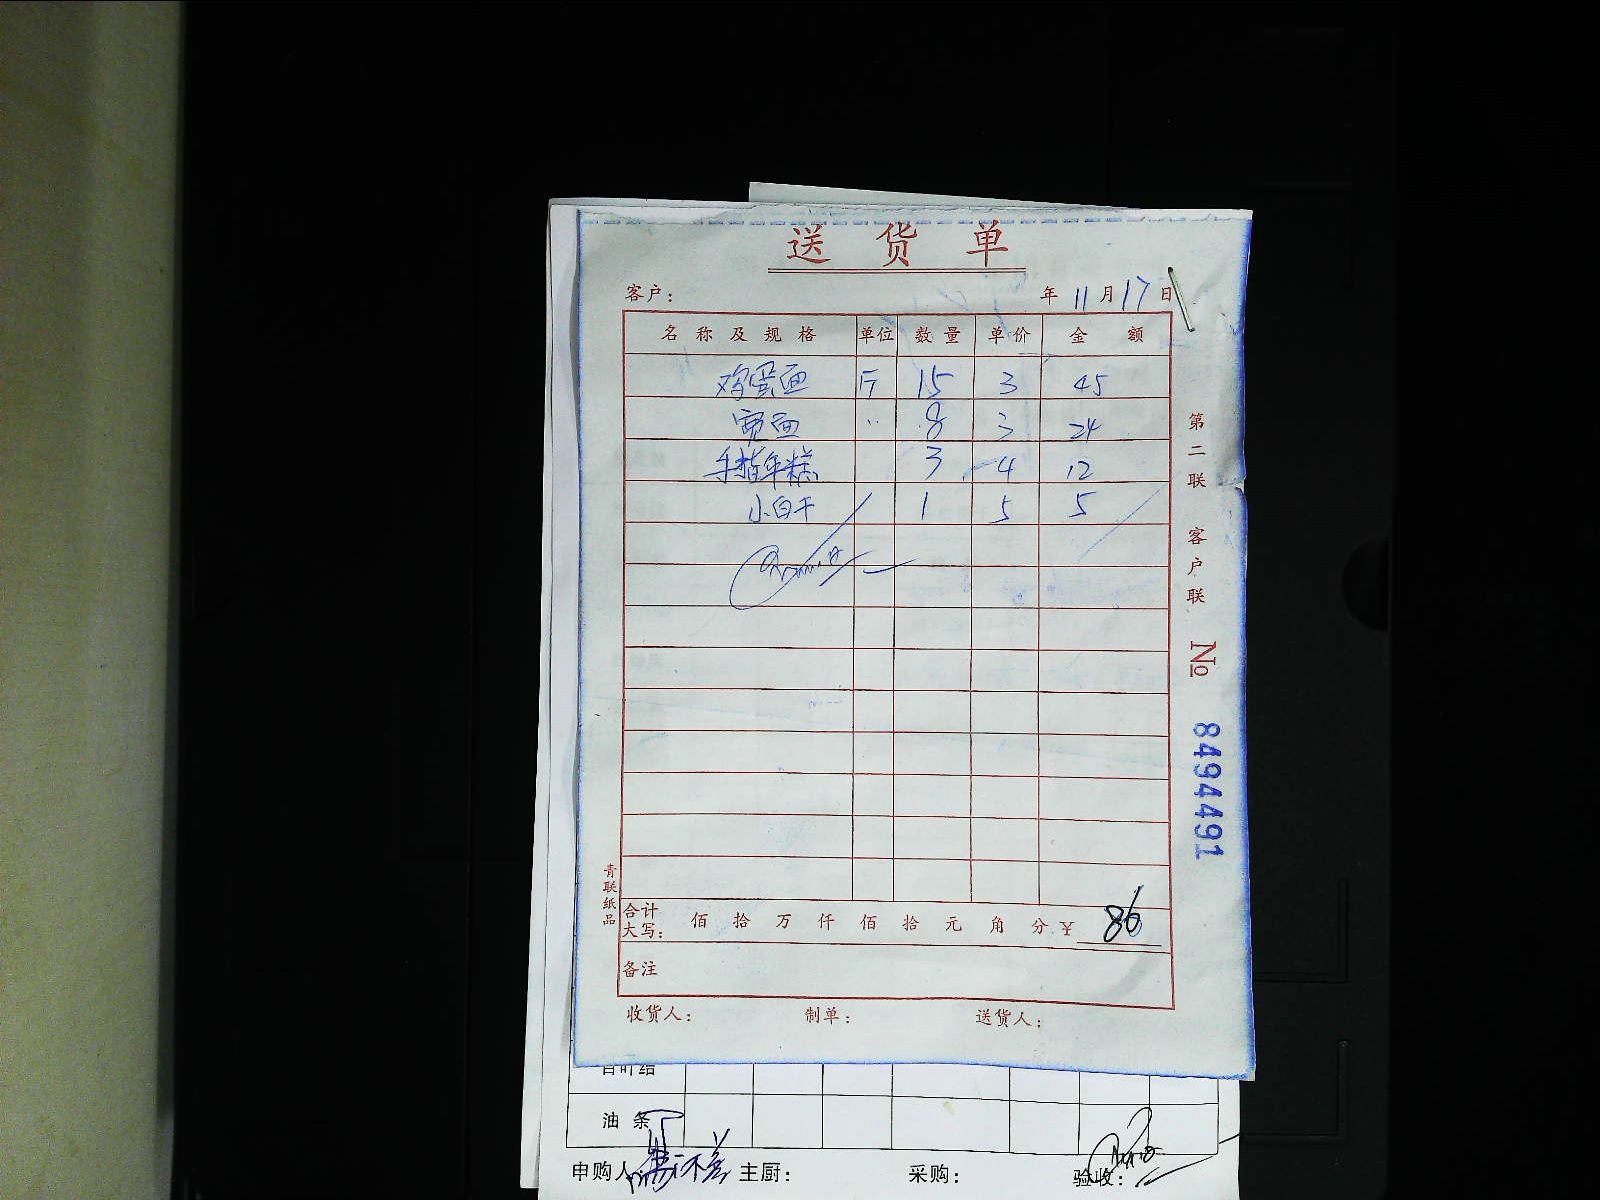 送货单
客户： 年 11 月 17 日
名称及规格 单位 数量 单价 金额
鸡蛋面 斤 15 3 45
宽面 〃 8 3 24
手指年糕 3 4 12
小白干 1 5 5
合计大写： 佰 拾 万 仟 佰 拾 元 角 分 ¥ 86
备注
收货人： 制单： 送货人：
第二联 客户联
No 8494491
青联纸品
百叶结
油条
申购人： 主厨： 采购： 验收：